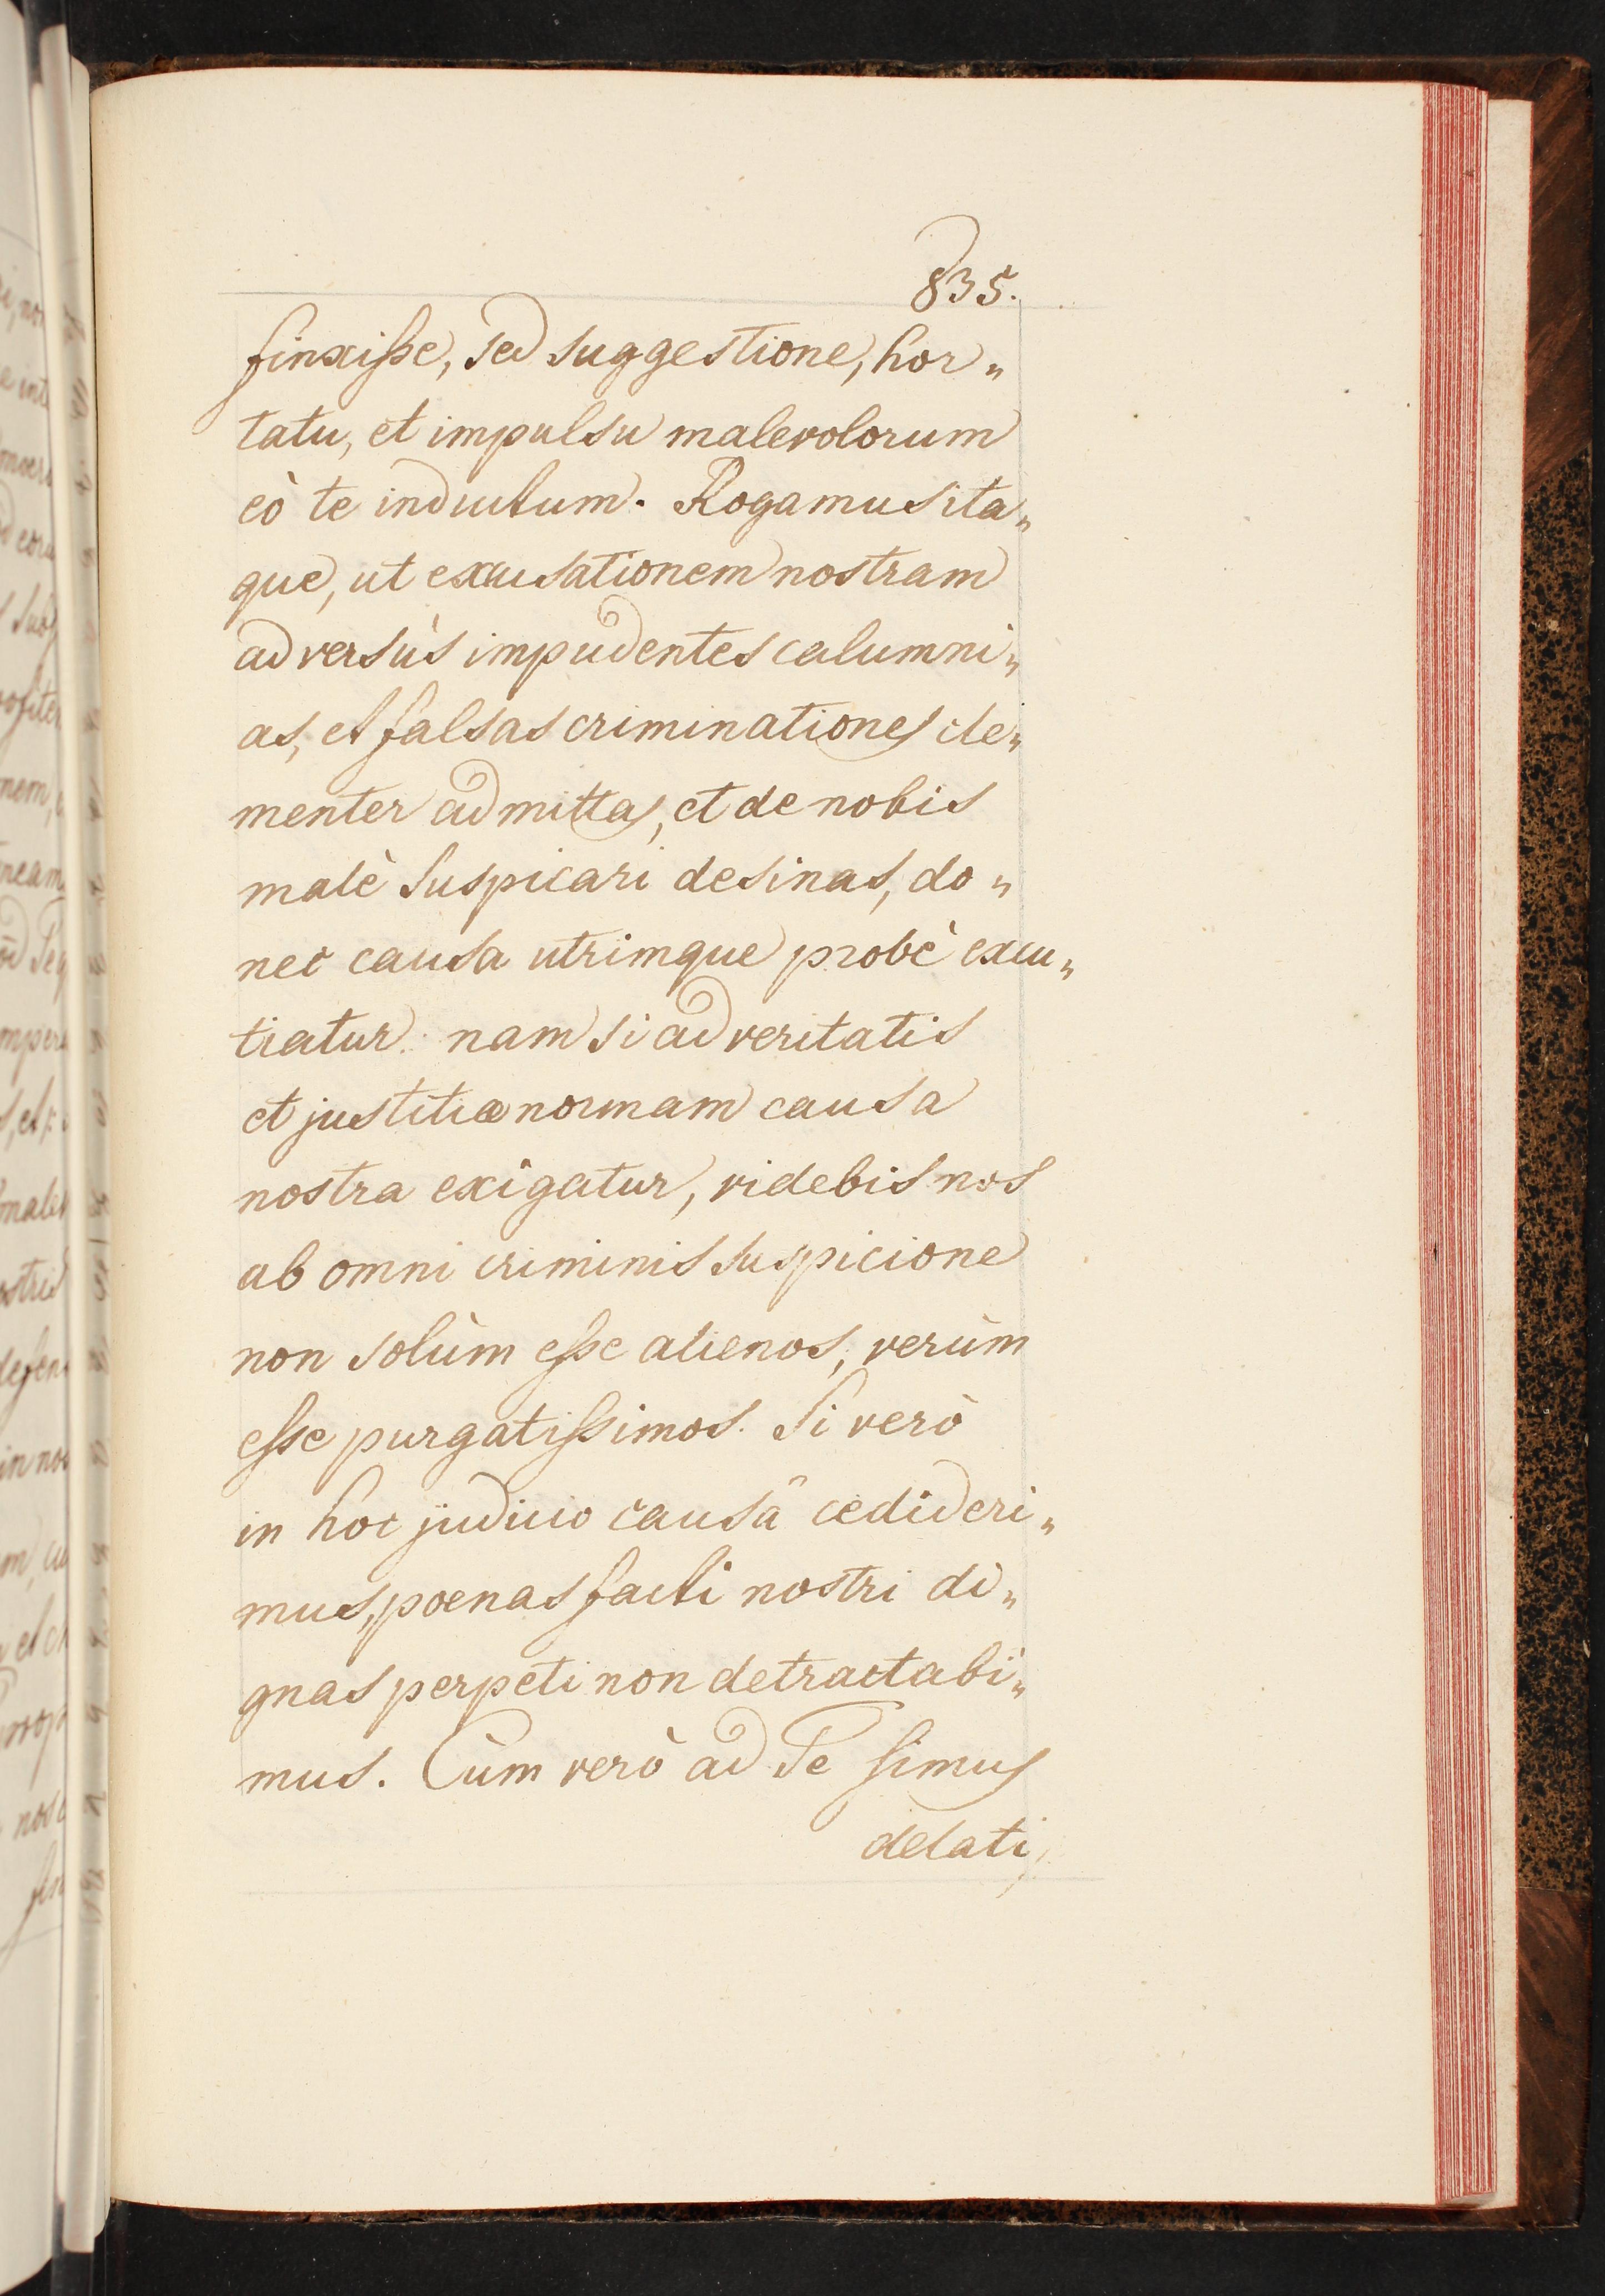 835.
finxiſse, sed suggestione, hor„
tatu, et impulsu malevolorum
eò te inductum. Rogamus ita„
que, ut excusationem nostram
adversùs impudentes calumni„
as, et falsas criminationes cle„
menter admittas, et de nobis
malè suspicari desinas, do„
nec causa utrimque probè excu„
tiatur: nam si ad veritatis
et justitiæ normam causa
nostra exigatur, videbis nos
ab omni criminis suspicione
non solùm eſse alienos, verùm
eſse purgatiſsimos. Si verò
in hoc judicio causâ cedideri„
mus, poenas facti nostri di„
gnas perpeti non detractabi„
mus. Cùm verò ad Te simus
delati,